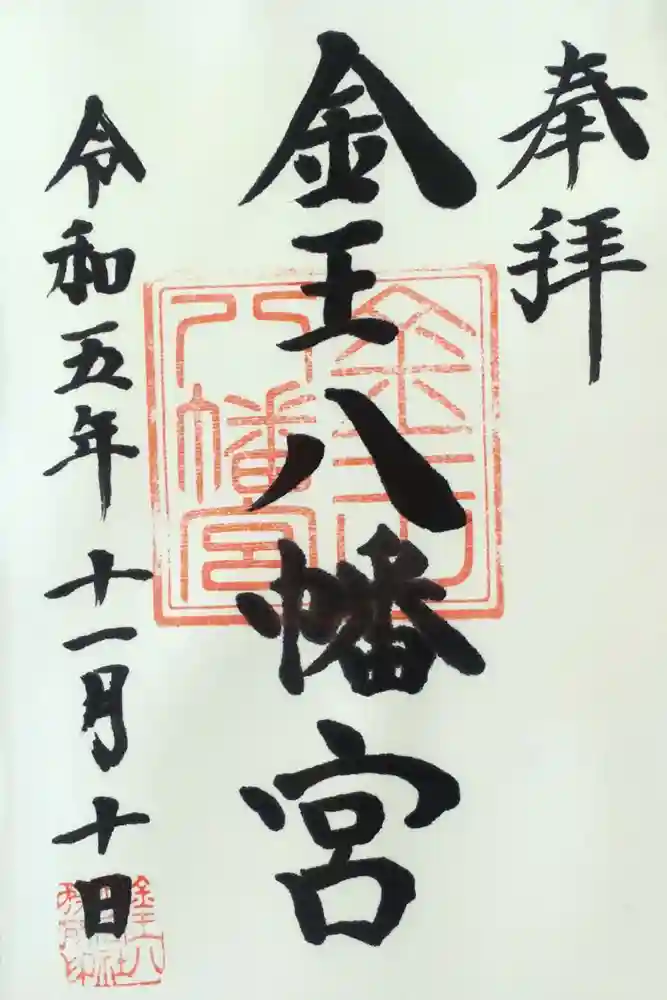 奉拝
金王八幡宮
令和五年十一月十日
金王八幡宮